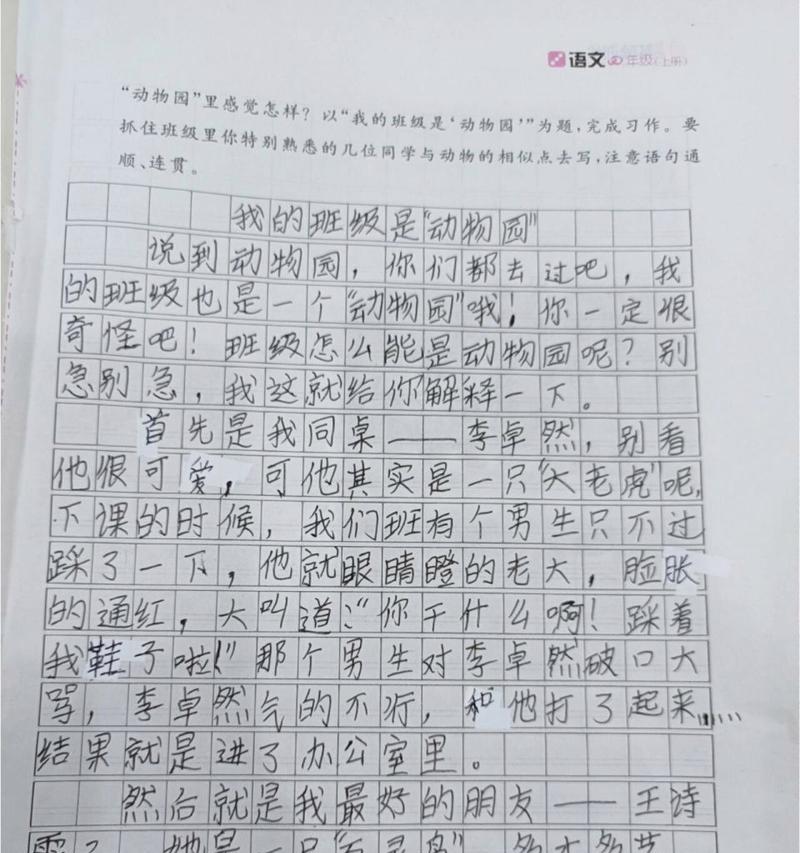 语文 年级(上册)
“动物园”里感觉怎样？以“我的班级是‘动物园’”为题，完成习作。要
抓住班级里你特别熟悉的几位同学与动物的相似点去写，注意语句通
顺、连贯。
我的班级是“动物园”
说到动物园，你们都去过吧，我
的班级也是一个“动物园”哦！你一定很
奇怪吧！班级怎么能是动物园呢？别
急别急，我这就给你解释一下。
首先是我同桌——李卓然，别看
他很可爱，可他其实是一只“大老虎”呢，
下课的时候，我们班有个男生只不过
踩了一下，他就眼睛瞪的老大，脸胀
的通红，大叫道：“你干什么啊！踩着
我鞋子啦！”那个男生对李卓然破口大
骂，李卓然气的不行，和他打了起来……
结果就是进了办公室里。
然后就是我最好的朋友——王诗
她是一只“百灵鸟”，多才多艺